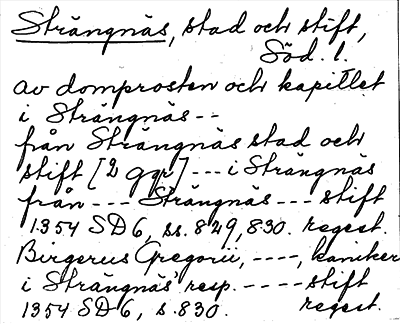 Strängnäs, stad och stift,
Söd. l.
av domprosten och kapitlet
i Strängnäs --
från Strängnäs stad och
stift [2 ggr] --- i Strängnäs
från --- Strängnäs --- stift
1354 SD6, ss. 829, 830. regest.
Birgerus Gregorii, ----, kaniker
i Strängnäs resp. ---- stift
1354 SD6, s. 830. regest.